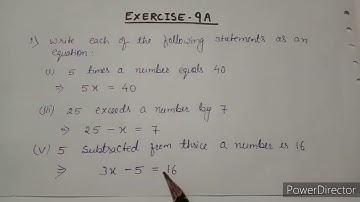 EXERCISE-9A
1) Write each of the following statements as an
equation:
(i) 5 times a number equals 40
⇒ 5x = 40
(iii) 25 exceeds a number by 7
⇒ 25 - x = 7
(v) 5 subtracted from thrice a number is 16
⇒ 3x - 5 = 16
PowerDirector